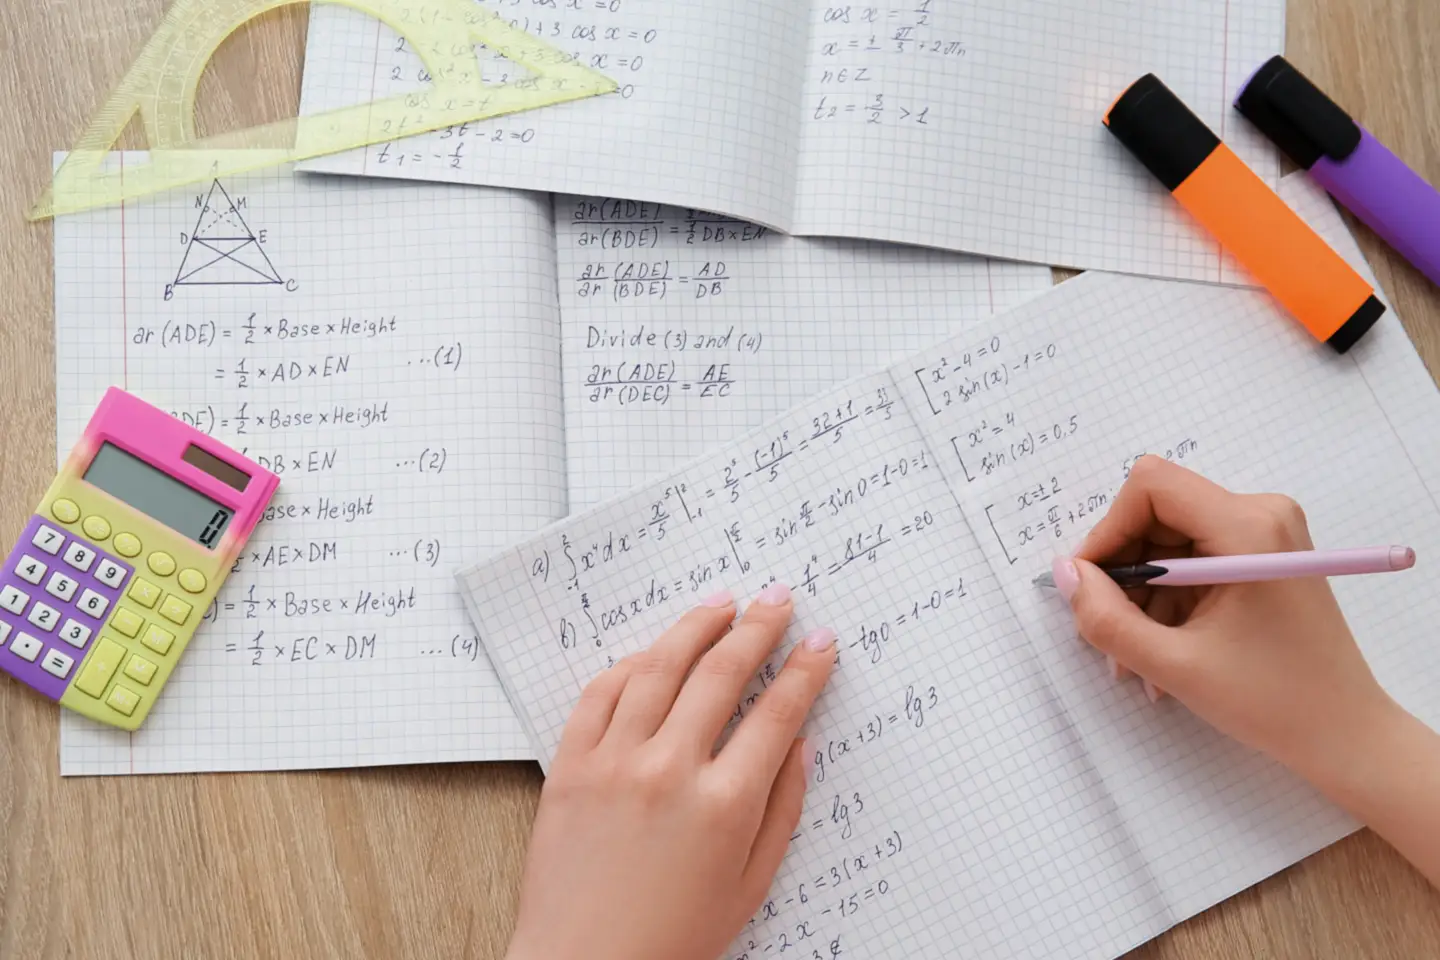 cos x = 0
2(1 - cos² x) + 3 cos x = 0
2 - 2 cos² x + 3 cos x = 0
2 cos² x - 3 cos x - 2 = 0
cos x = t
2t² - 3t - 2 = 0
t₁ = - 1/2
cos x = 1/2
x = ± π/3 + 2πn
n ∈ Z
t₂ = 3/2 > 1
A
N M
D E
B C
ar (ADE) = 1/2 × Base × Height
= 1/2 × AD × EN ...(1)
BDE) = 1/2 × Base × Height
DB × EN ...(2)
Base × Height
× AE × DM ...(3)
) = 1/2 × Base × Height
= 1/2 × EC × DM ...(4)
ar (ADE) / ar (BDE) = / 1/2 DB × EN
ar (ADE) / ar (BDE) = AD / DB
Divide (3) and (4)
ar (ADE) / ar (DEC) = AE / EC
a) ∫₋₁² x⁴ dx = x⁵/5 |₋₁² = 2⁵/5 - (-1)⁵/5 = 32+1/5 = 33/5
в) ∫₀^(π/2) cos x dx = sin x |₀^(π/2) = sin π/2 - sin 0 = 1-0 = 1
- 1⁴/4 = 81-1/4 = 20
- tg 0 = 1-0 = 1
g (x+3) = lg 3
= lg 3
+ x - 6 = 3(x+3)
² - 2x - 15 = 0
3 ∉
[ x² - 4 = 0
2 sin(x) - 1 = 0
[ x² = 4
sin(x) = 0,5
[ x = ± 2
x = π/6 + 2πn; 2πn
7 8 9
4 5 6
1 2 3
. =
0